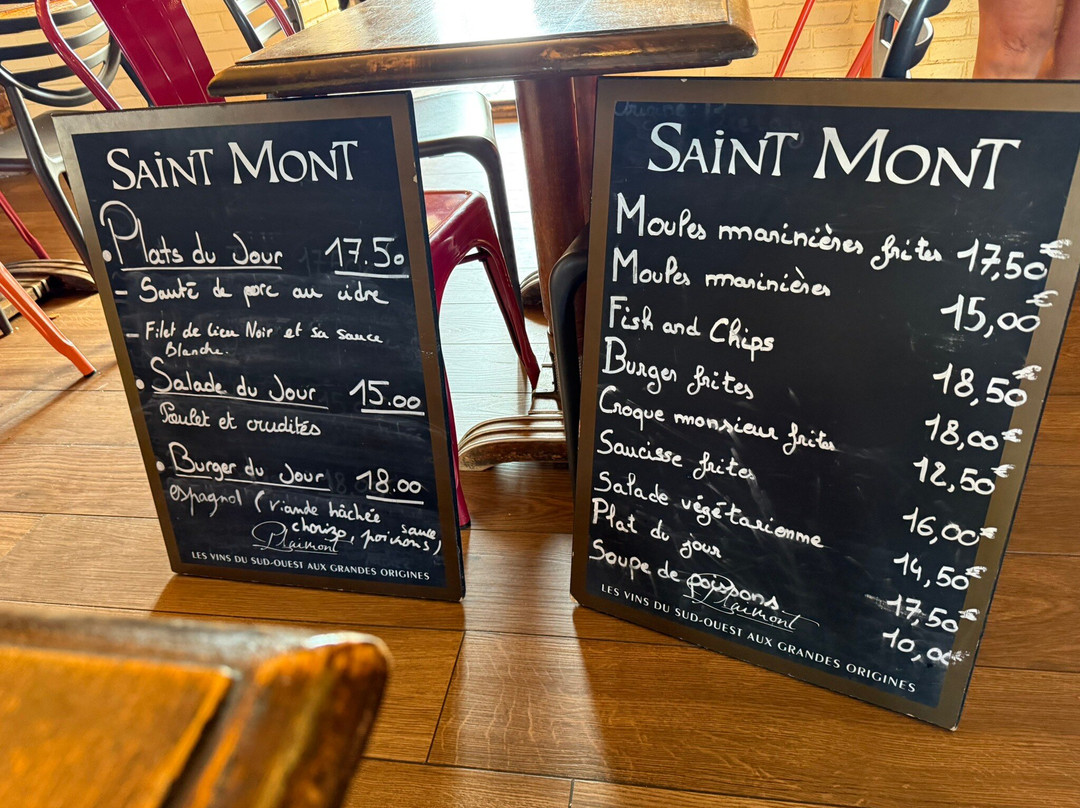 SAINT MONT
• Plats du Jour 17.50
- Sauté de porc au cidre
- Filet de lieu Noir et sa sauce
Blanche.
• Salade du Jour 15.00
Poulet et crudités
• Burger du Jour 18.00
espagnol (viande hâchée sauce,
chorizo, poivrons)
Plaimont
LES VINS DU SUD-OUEST AUX GRANDES ORIGINES
SAINT MONT
Moules marinières frites 17,50€
Moules marinières 15,00€
Fish and Chips 18,50€
Burger frites 18,00€
Croque monsieur frites 12,50€
Saucisse frites 16,00€
Salade végétarienne 14,50€
Plat du jour 17,50€
Soupe de poissons 10,00€
Plaimont
LES VINS DU SUD-OUEST AUX GRANDES ORIGINES